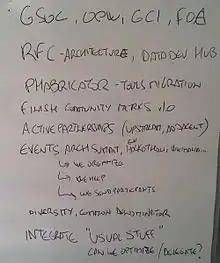 GSOC, OPW, GCI, FDA
RFC - ARCHITECTURE, DATA & DEV HUB
PHABRICATOR - TOOLS MIGRATION
FINISH COMMUNITY METRICS v1.0
ACTIVE PARTNERSHIPS (UPSTREAM, ADJACENT)
EVENTS ARCH SUMMIT, HACKATHON, WIKIMANIA...
↳ WE ORGANIZE
↳ WE HELP
↳ WE SEND PARTICIPANTS
DIVERSITY, COMMON DENOMINATOR
INTEGRATE "USUAL STUFF"
CAN WE OPTIMIZE / DELEGATE?